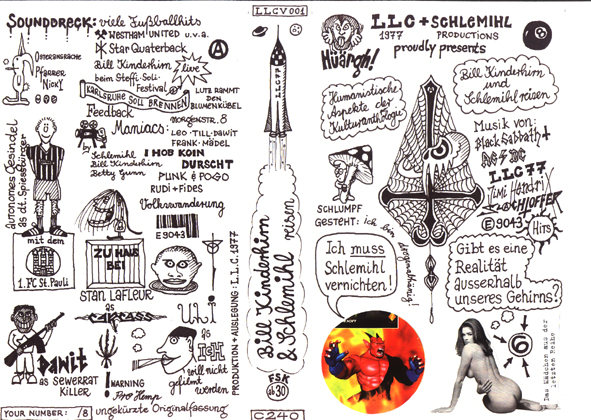 SOUNDDRECK: viele Fußballhits
WESTHAM UNITED u.v.a.
Star Quaterback
OSTERANSPRACHE
PFARRER
NICKY
Bill Kinderhirn
live
beim Steffi-Soli-
Festival
KARLSRUHE SOLL BRENNEN
LUTZ RAMMT
DEN
BLUMENKÜBEL
Feedback
Morgenstr. 8
Maniacs:
LEO · TILL · DAWIT
FRANK · MÄDEL
by
Schlemihl
Bill Kinderhirn
Betty Gunn
I HOB KOIN
DURSCHT
PUNK & POGO
RUDI + FIDES
autonomes Gesindel
als dt. Spiessbürger
mit dem
1. FC St. Pauli
Volkswanderung
E9043
ZU HAUS
BEI
STAN LAFLEUR
as
CARCASS
Uhi
as
ICH
will nicht
gefilmt
werden
Dawit
as SEWERRAT
KILLER
WARNING
Pro Hemp
YOUR NUMBER: /8
ungekürzte Originalfassung
PRODUKTION + AUSLEGUNG: L.L.C. 1977
LLCV 001
LLC77
Bill Kinderhirn
& Schlemihl reisen
FSK
ab 30
C240
LLC + SCHLEMIHL
1977 PRODUCTIONS
proudly presents
Hüargh!
8
Humanistische
Aspekte der
Kulturanthologie
Bill Kinderhirn
und
Schlemihl reisen
Musik von:
Black Sabbath +
AC/DC
LLC77
Jimi Hendrix
SCHLOFFER
E9043
HITS
SCHLUMPF
GESTEHT: ich bin drogenabhängig!
Ich muss
Schlemihl
vernichten!
Gibt es eine
Realität
ausserhalb
unseres Gehirns?
6
Das Mädchen aus der
letzten Reihe